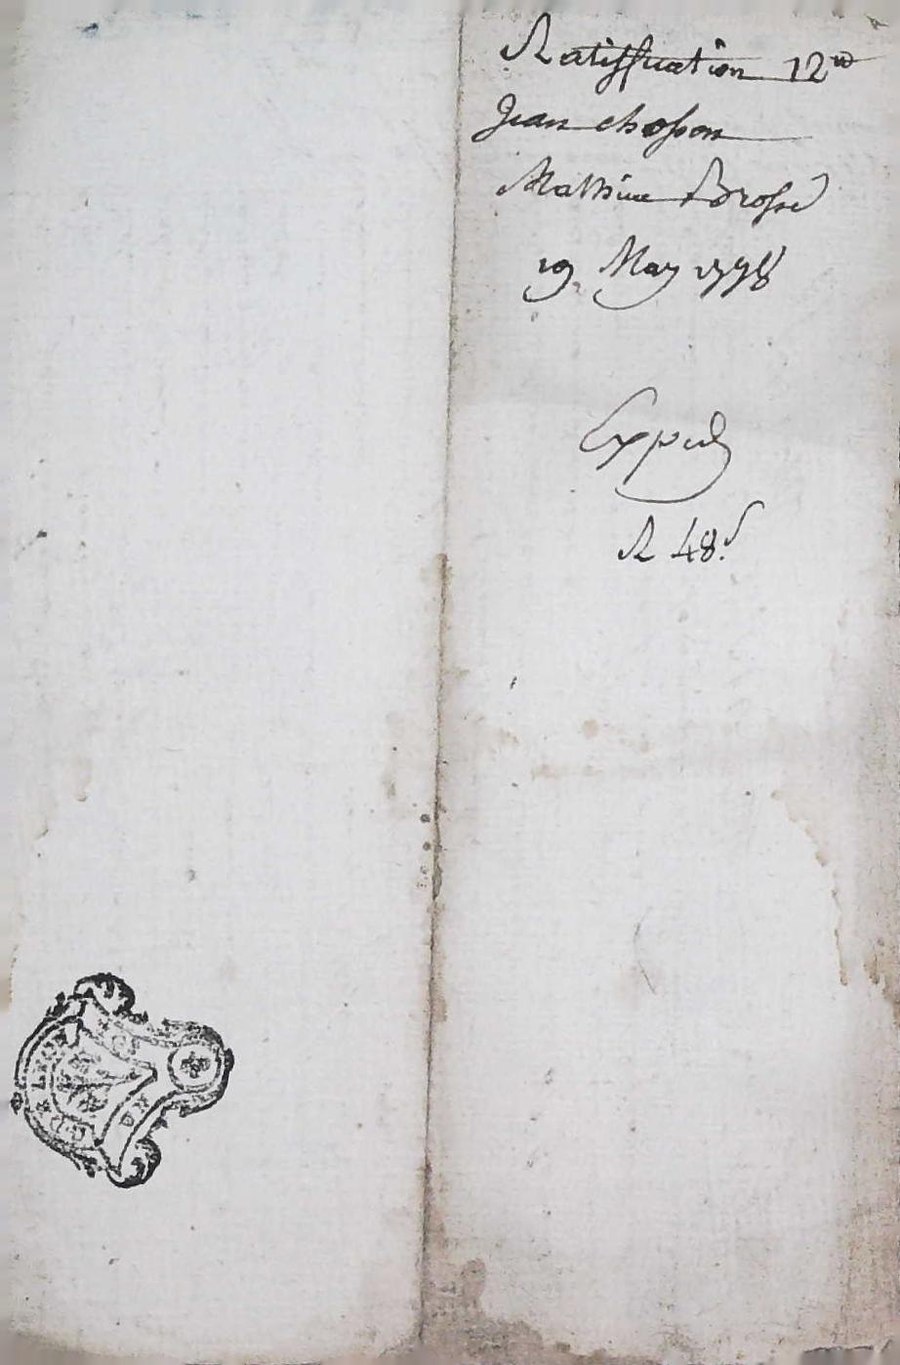 Ratiffication 12ᵗᵗ
Jean chosson
Mathieu Brossé
19 May 1778
Exped
R 48 s